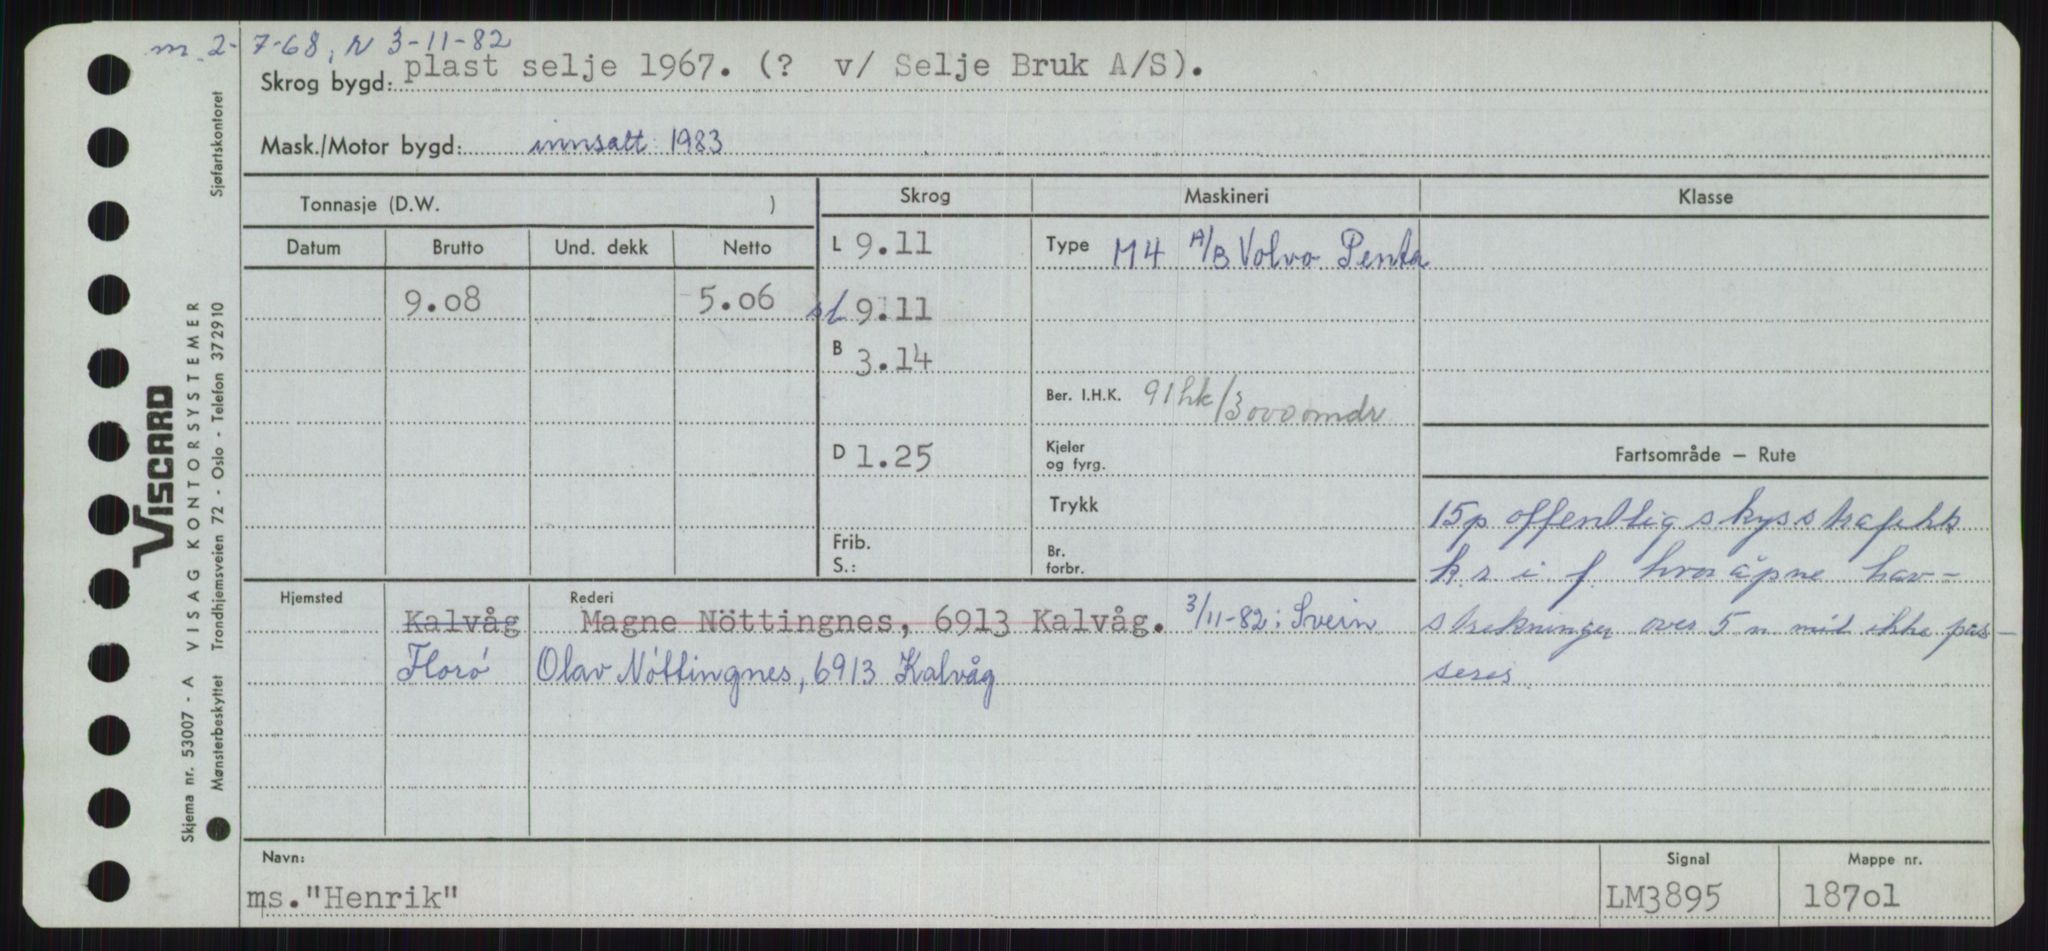 m 2-7-68, N 3-11-82
Skrog bygd: plast selje 1967. (? v/ Selje Bruk A/S).
Mask./Motor bygd: innsatt 1983
Tonnasje (D.W. )
Skrog
Maskineri
Klasse
Datum
Brutto
Und. dekk
Netto
L 9.11
Type M4 A/B Volvo Penta
9.08
5.06
st 9.11
B 3.14
Ber. I.H.K. 91hk/3000 omdr
D 1.25
Kjeler
og fyrg.
Fartsområde – Rute
Trykk
15p offentlig skysstrafikk
Frib.
S.:
Br.
forbr.
k s i f hvor åpne hav-
strekninger over 5 n mil ikke pas-
seres
Hjemsted
Rederi
Kalvåg
Magne Nöttingnes, 6913 Kalvåg. 3/11-82: Svein
Florö
Olav Nöttingnes, 6913 Kalvåg
Navn:
ms."Henrik"
Signal
LM3895
Mappe nr.
187o1
VISCARD
Skjema nr. 53007 - A VISAG KONTORSYSTEMER
Mønsterbeskyttet Trondhjemsveien 72 - Oslo - Telefon 372910 Sjøfartskontoret